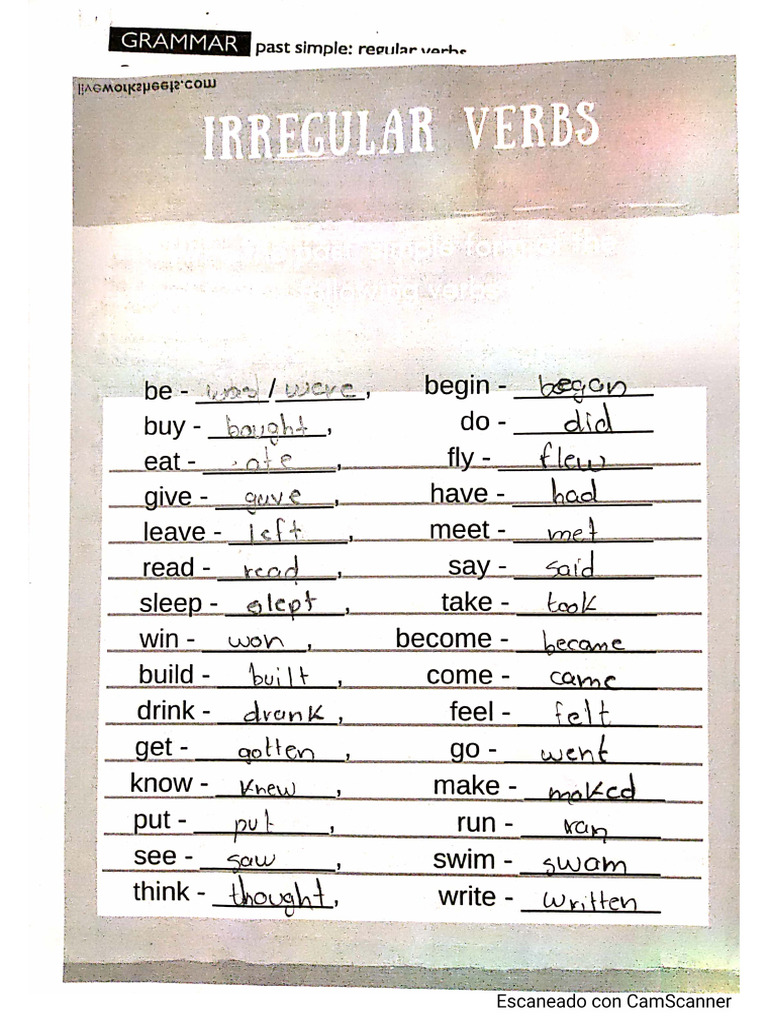 GRAMMAR past simple: regular verbs
liveworksheets.com
IRREGULAR VERBS
past simple form of the
following verbs
be - was / were, begin - began
buy - bought, do - did
eat - ate, fly - flew
give - gave, have - had
leave - left, meet - met
read - read, say - said
sleep - slept, take - took
win - won, become - became
build - built, come - came
drink - drank, feel - felt
get - gotten, go - went
know - knew, make - maked
put - put, run - ran
see - saw, swim - swam
think - thought, write - written
Escaneado con CamScanner